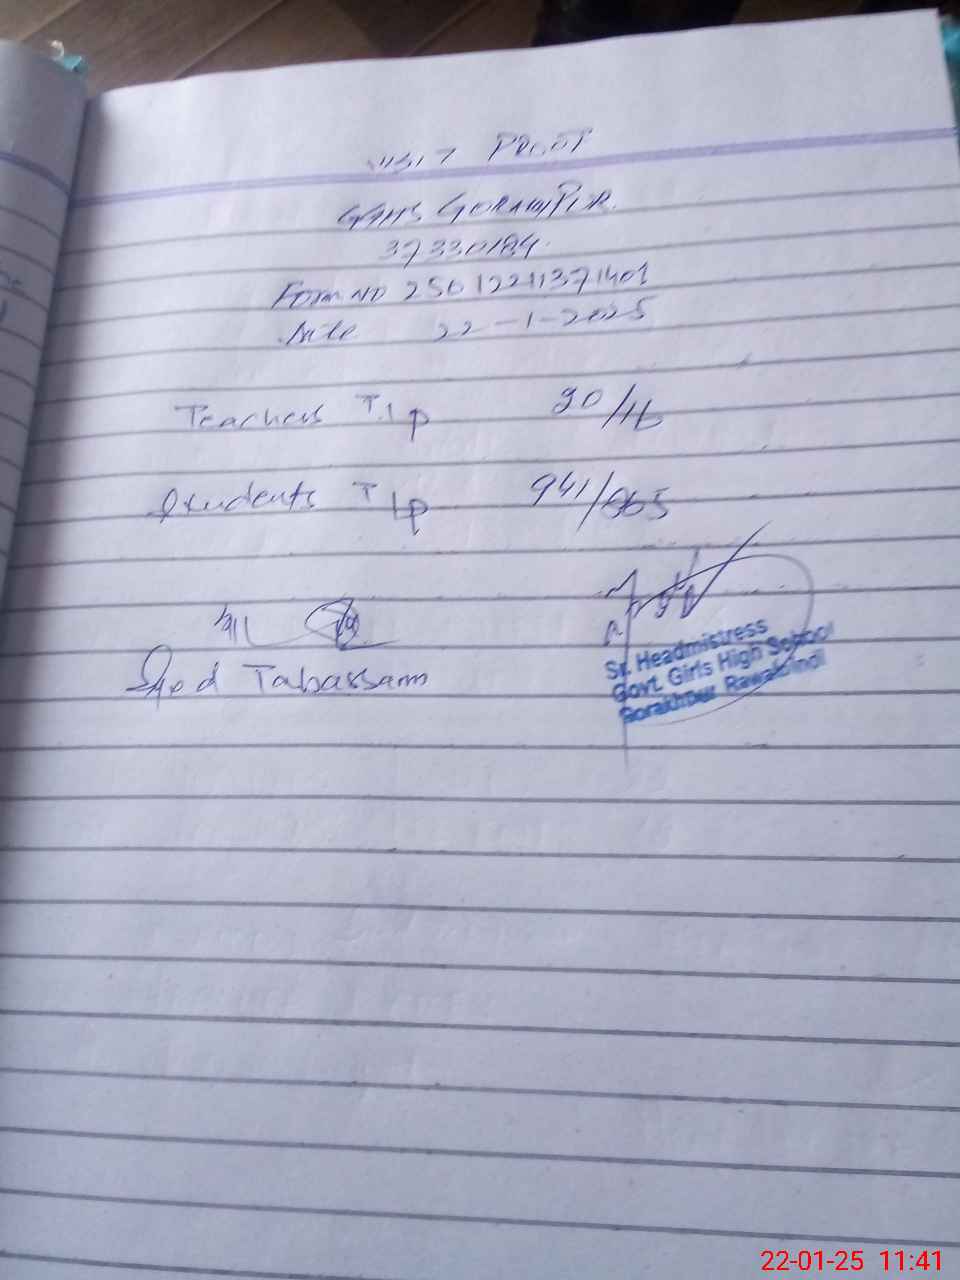 VISIT PROOF
GGHS GORAKHPUR
37330184
Form NO 25012211371401
Date 22-1-2025
Teachers T.I P
Students T I P 941/865
Tabassam
Sr. Headmistress
Govt. Girls High School
Gorakhpur Rawalpindi
22-01-25 11:41